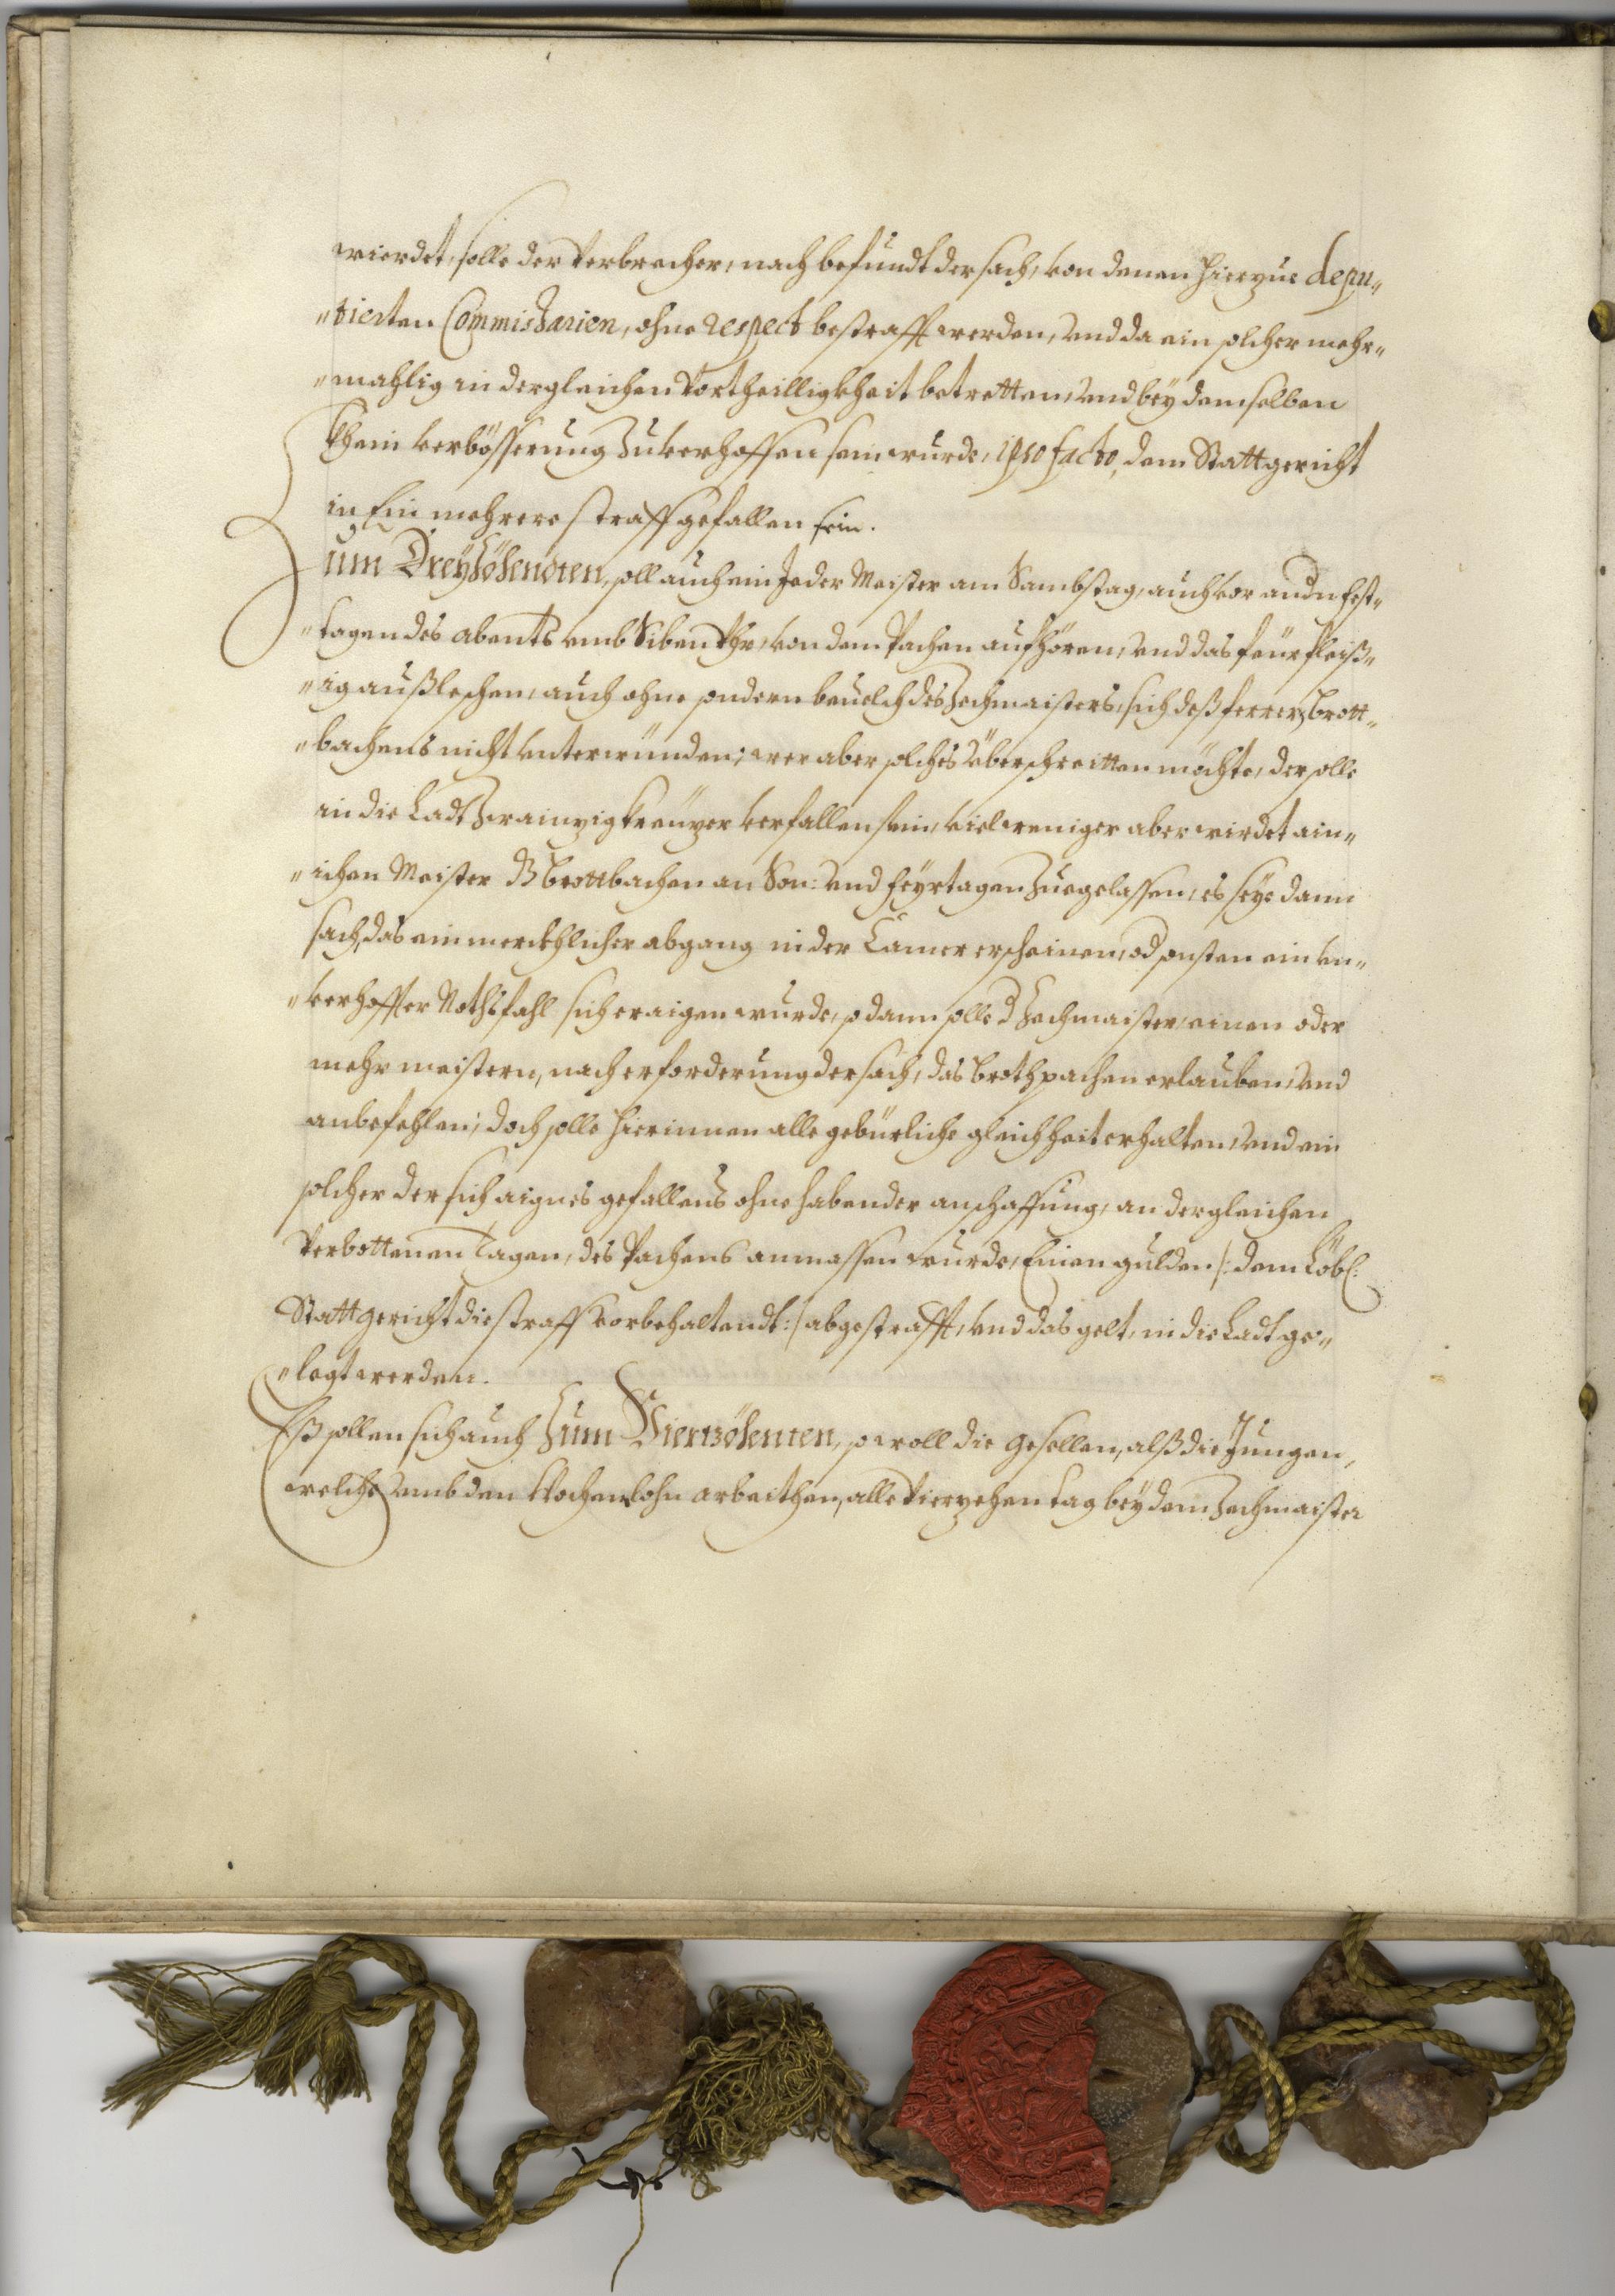 wierdet, solle der Verbrecher, nach befundt der sach, von denen hierzue depu„
„tierten Commissarien, ohne respect bestrafft werden, vnd da ein solcher mehr„
„mahlig in dergleichen Vortheilligkheit betretten, vnd bey demselben
khein verbösserung zuverhoffen sein wurde, ipso facto, dem Stattgericht
in Ein mehrere straff gefallen sein.
Zum Dreyzöhenden, soll auch ein Jeder Meister am Sambstag, auch vor andn fest„
„tagen des abents vmb Siben Vhr, von dem Pachen aufhören, vnd das feur fleiß„
„ig außleschen, auch ohne sondern beuelch des Zechmaisters, sich deß ferrern brott„
„bachens nicht vnterwünden; wer aber solches überschreitten möchte, der solle
in die Ladt Zwainzig kreuzer verfallen sein, viel weniger aber wirdet ain„
„ichen Meister dz brottbachen an Son: vnd feyrtagen zuegelassen, es seye dann
sach, das ein merckhlicher abgang in der Camer erscheinen, od sonsten ein vn„
„verhoffter Nothsfahl sich eraigen wurde, so dann solle d Zechmaister, einen oder
mehr meistern, nach erforderung der sach, das broth pachen erlauben, vnd
anbefehlen; doch solle hierinnen alle gebürliche gleichheit erhalten, vnd ein
solcher der sich aignes gefallens ohne habender anschaffung, an dergleichen
Verbottenen Tagen, des Pachens anmassen wurde, Einen gulden /: dem Löbl:
Stattgericht die straff vorbehaltendt :/ abgestrafft, vnd das gelt, in die Ladt ge„
„legt werden.
Eß sollen sich auch Zum Vierzöhenten, sowoll die gesellen, alß die Jungen,
welche vmb den Wochenlohn arbeithen, alle Vierzehen tag bey dem Zechmaister